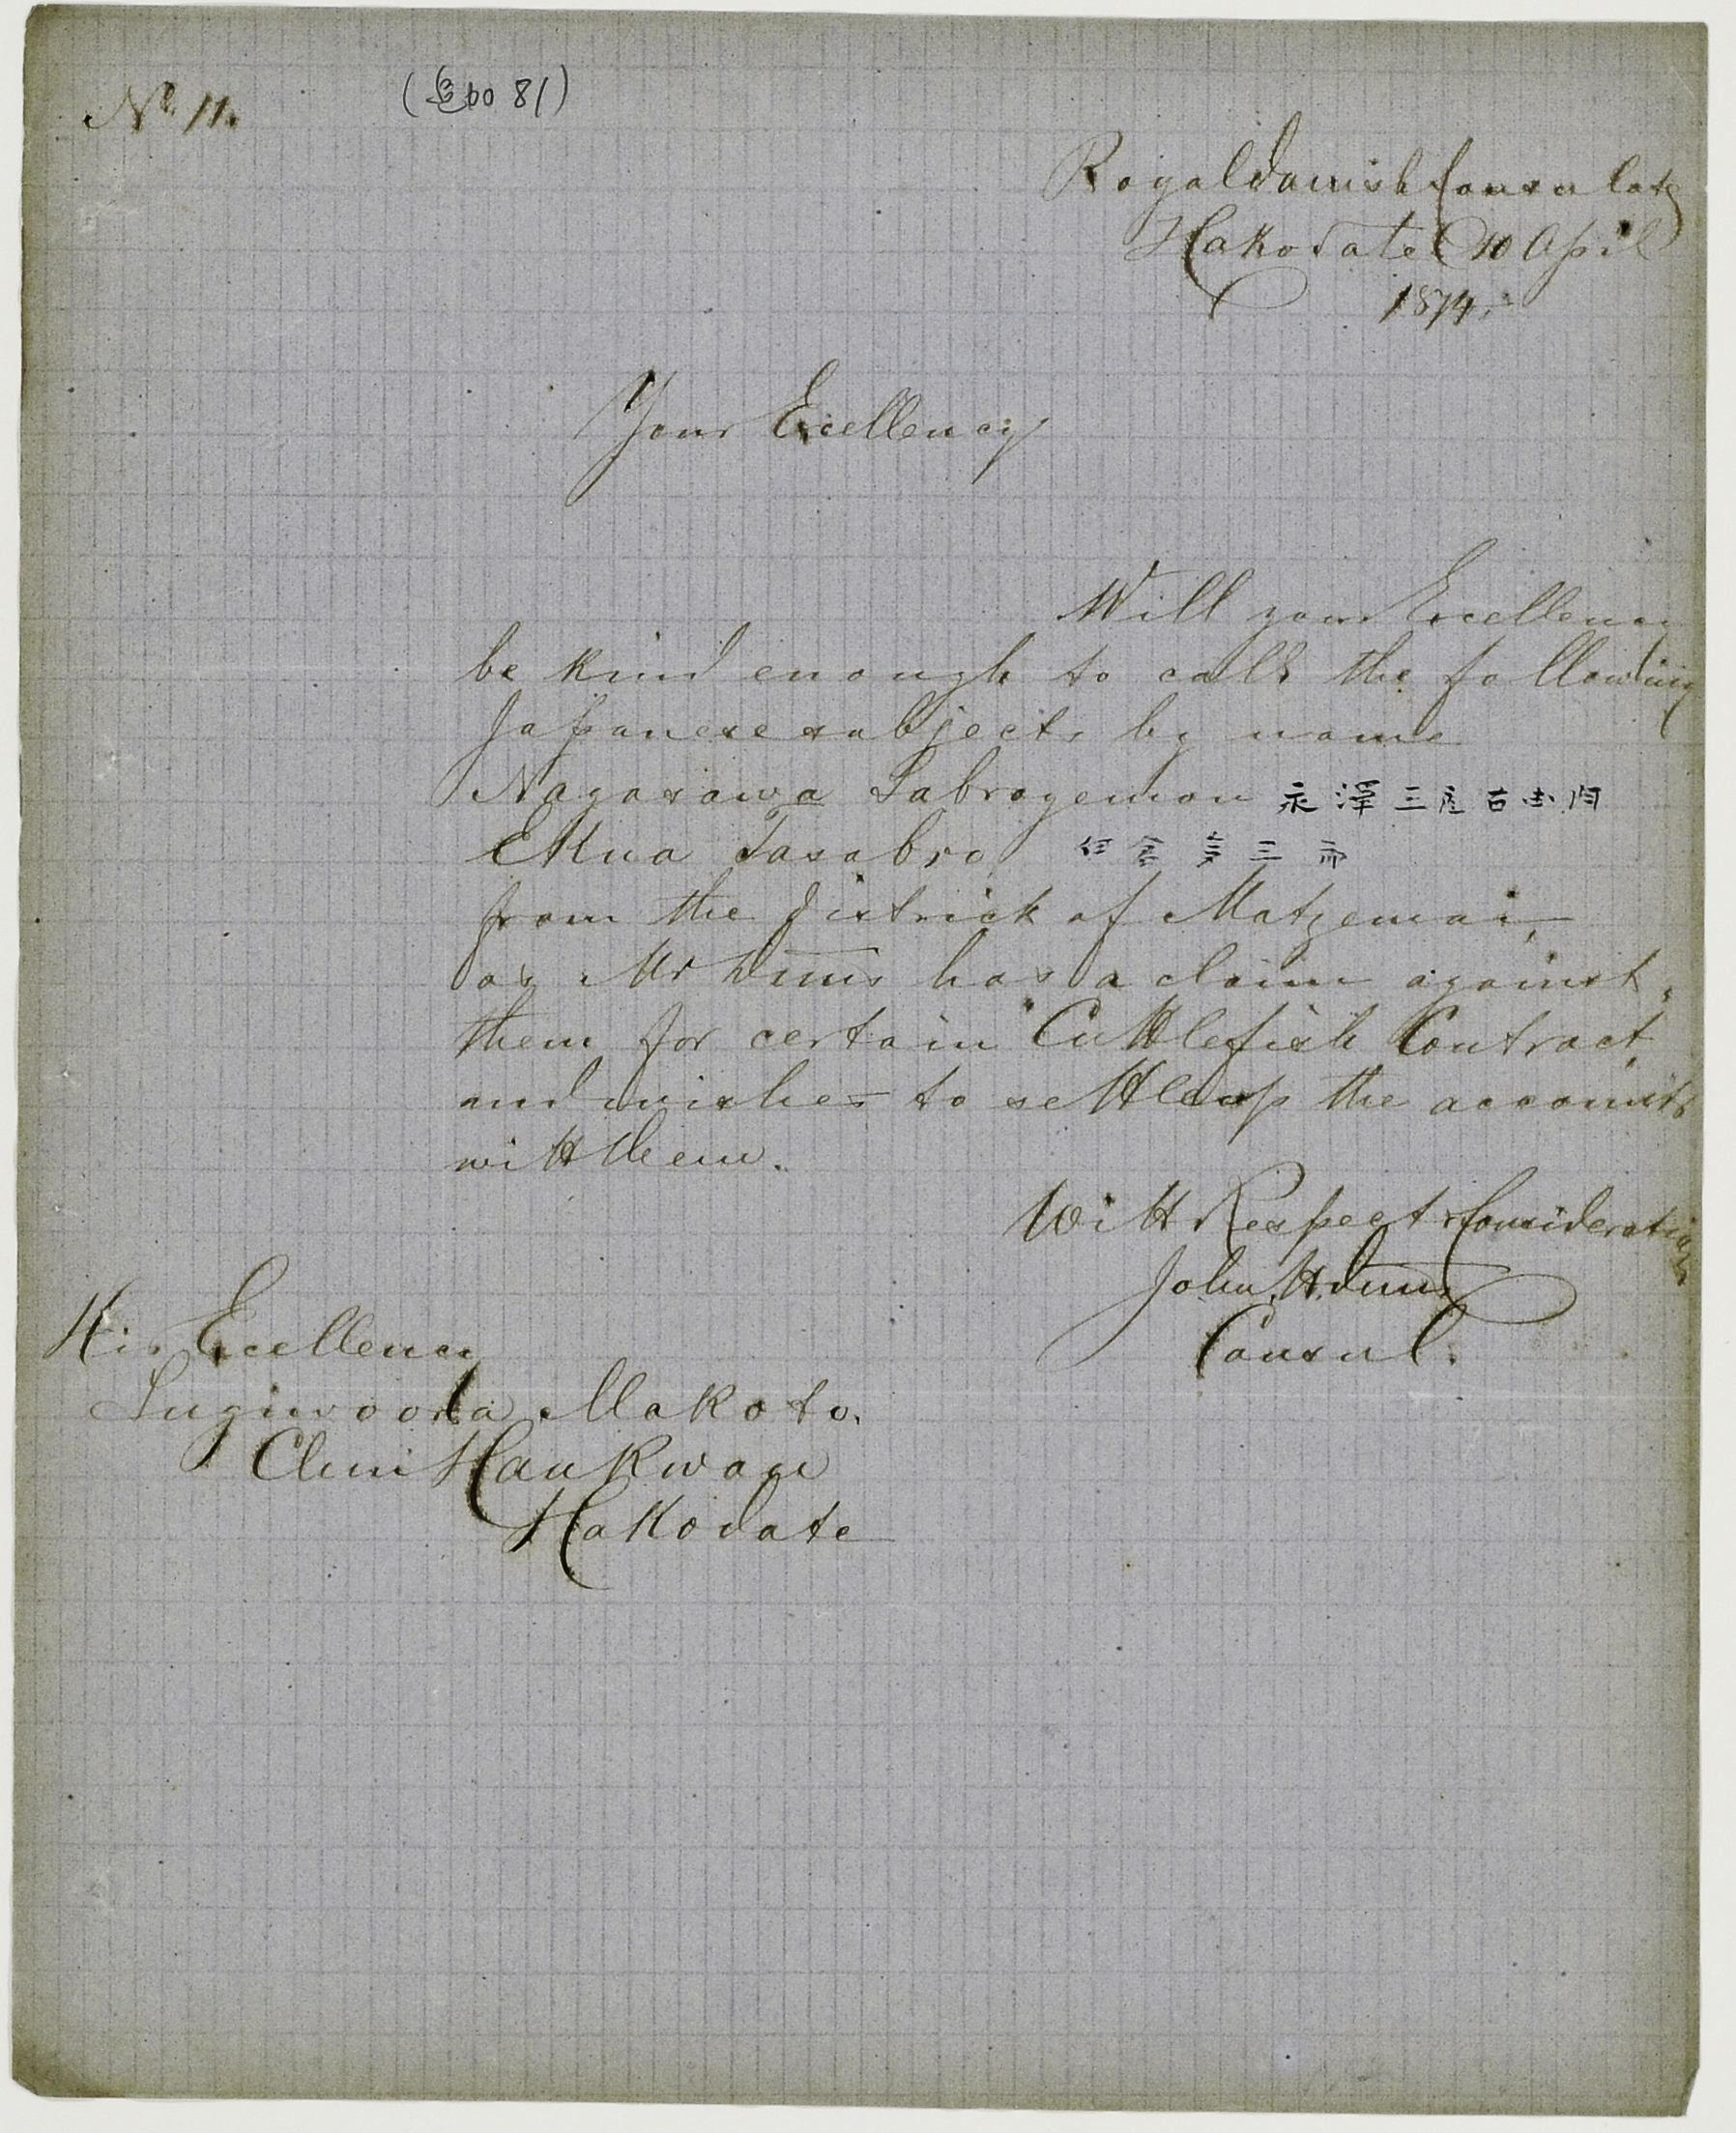 No. 11.
Royal danish Consulate
Hakodate 10 April
1874.
Your Excellency
Will your Excellency
be kind enough to call the following
Japanese subjects by name
Nagasawa Sabrogemon 永澤三
Ekua Tasabro 三
from the district of Matzemai,
as Mr Duus has a claim against
them for certain Cuttlefish Contract,
and wishes to settle up the accounts
with them.
With Respect & Consideration
John H. Duus
Consul.
His Excellency
Sugiwoora Makoto.
Chiu Hankwan
Hakodate